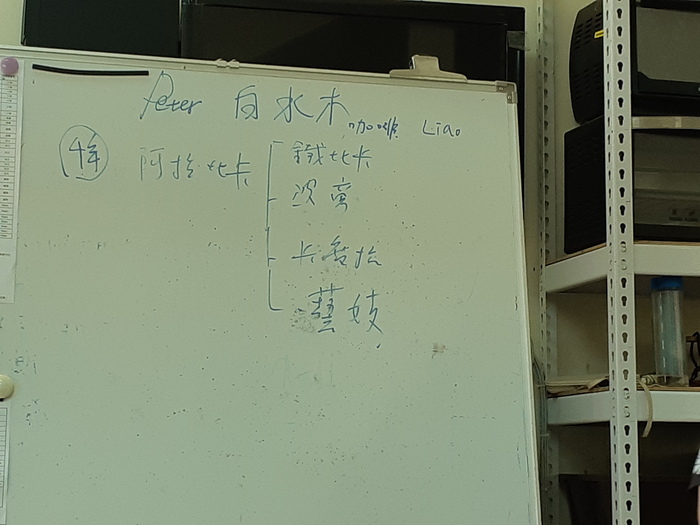 Peter 白水木 咖啡 Liao
特 阿拉比卡 鐵比卡
波旁
卡杜拉
藝妓